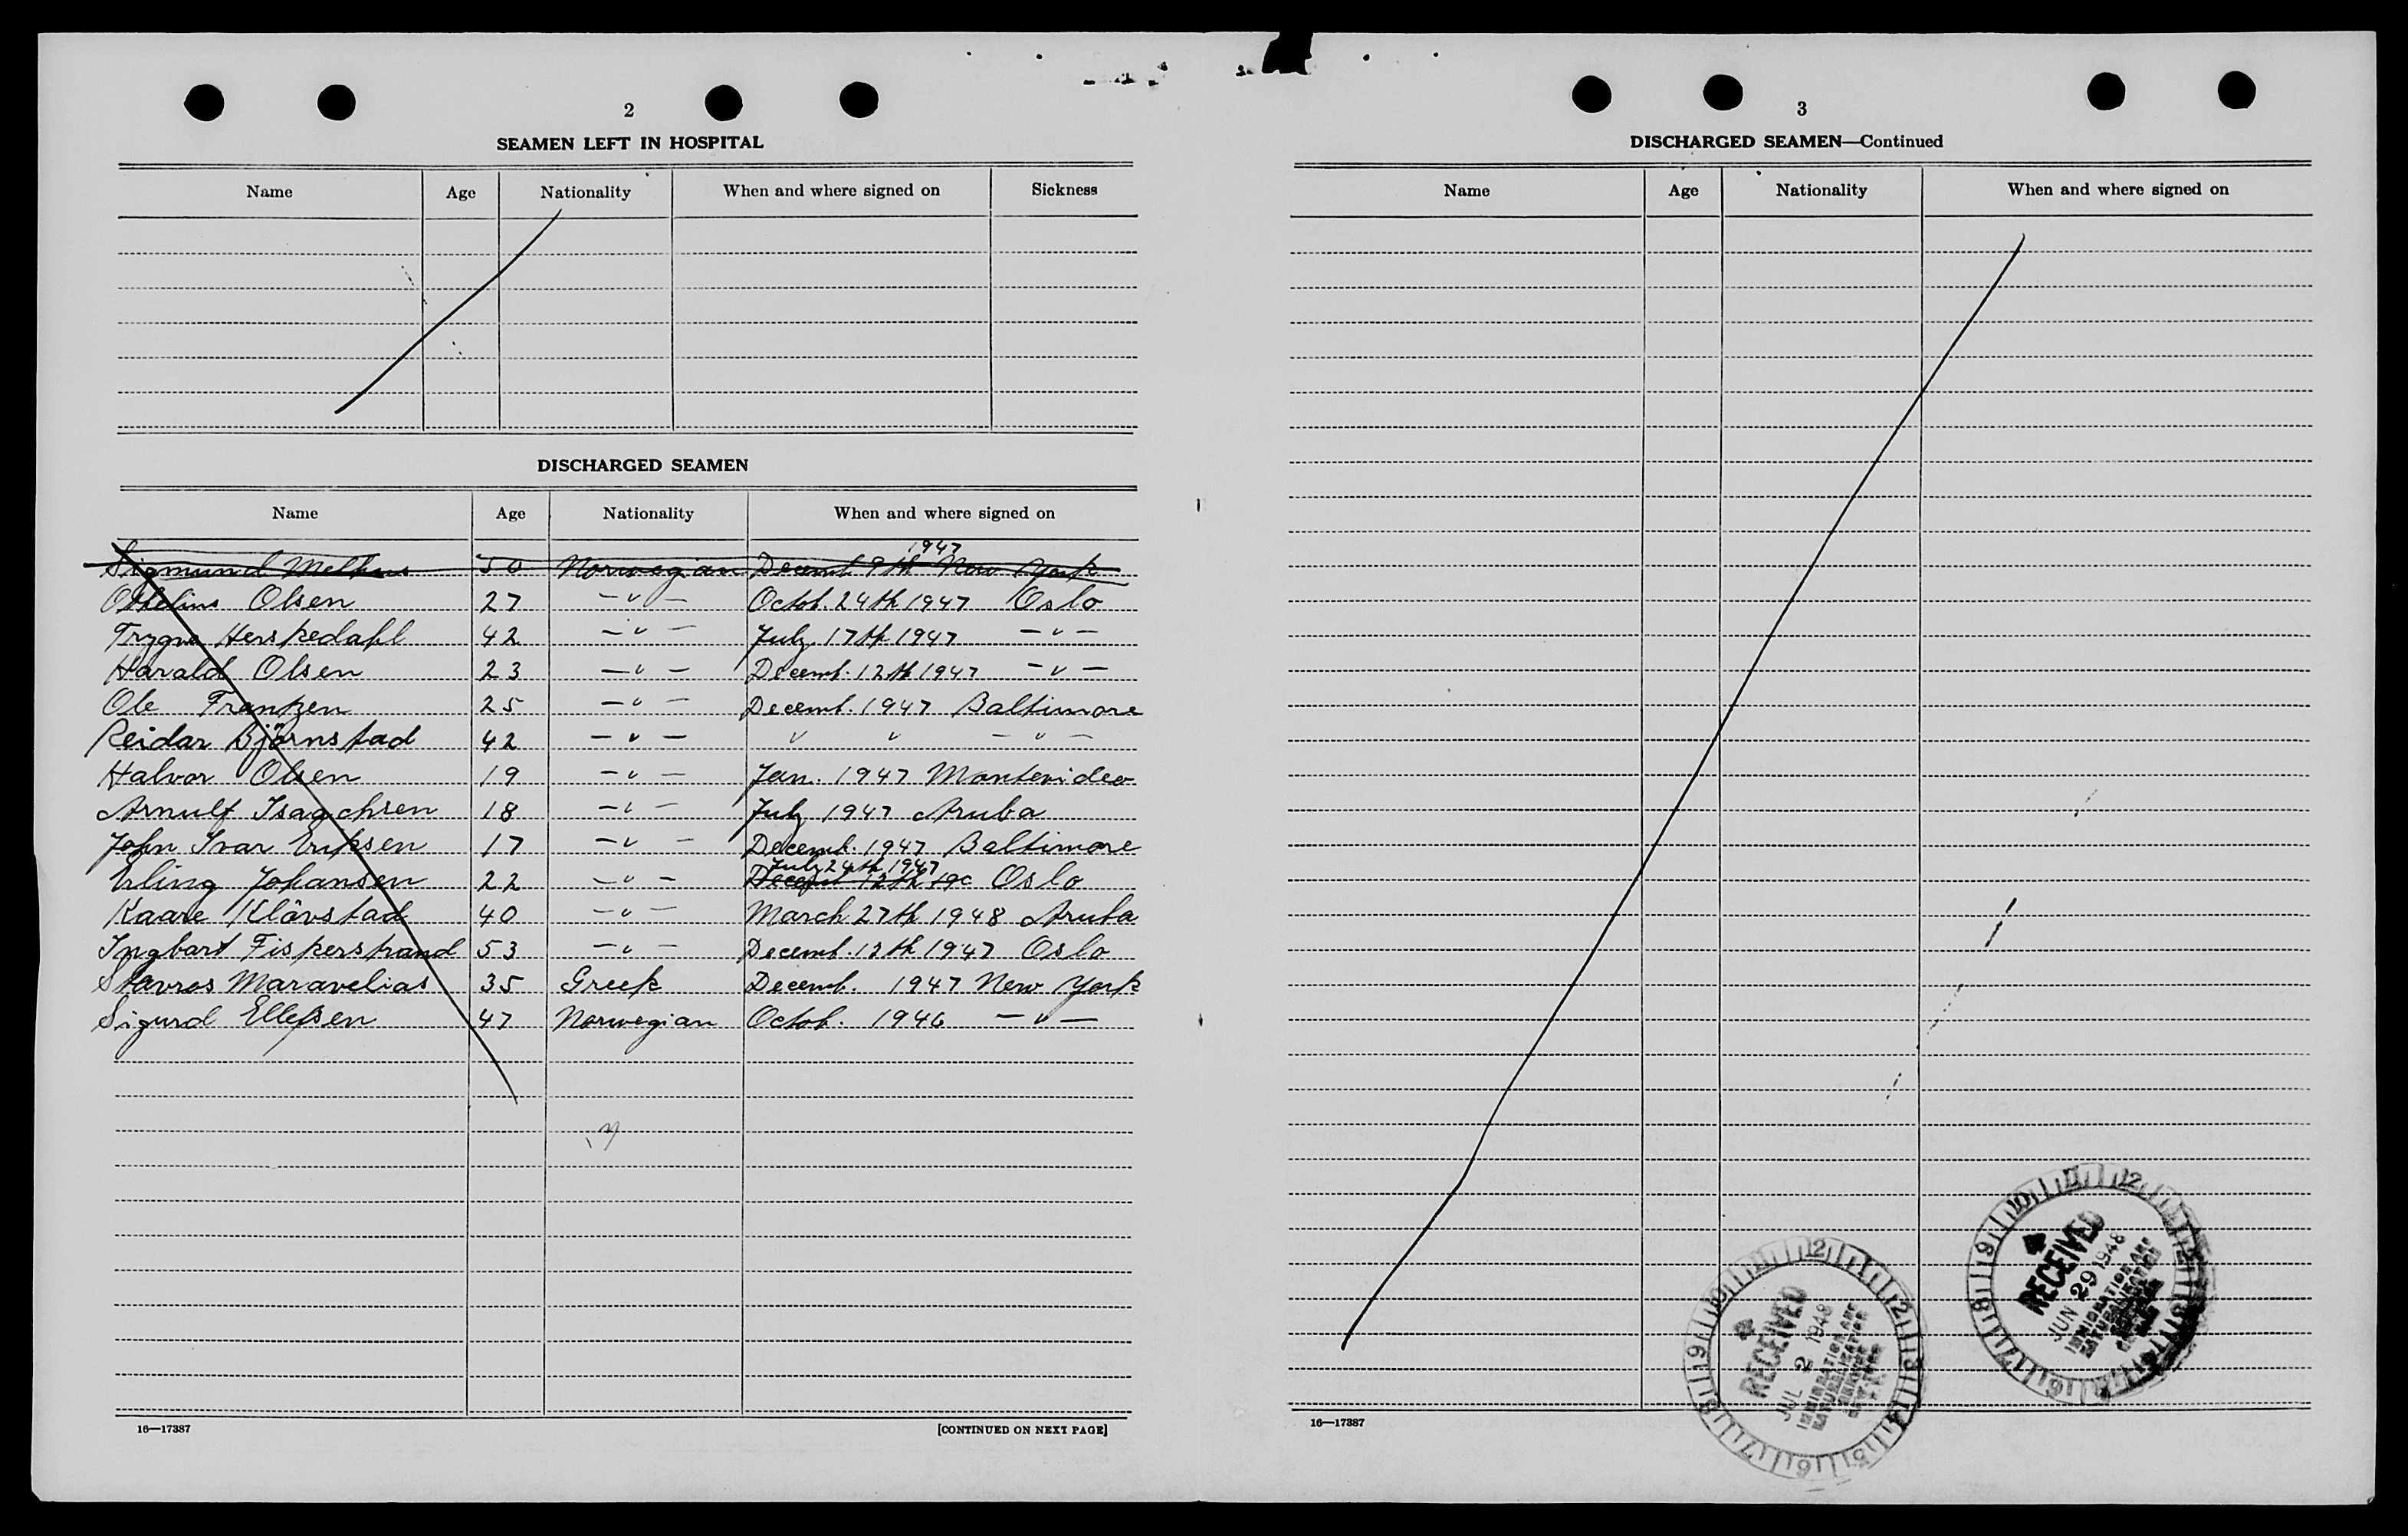 2
SEAMEN LEFT IN HOSPITAL
Name Age Nationality When and where signed on Sickness
DISCHARGED SEAMEN
Name Age Nationality When and where signed on
1947
Sigmund 50 Norwegian Decemb 9th New York
Olsen 27 -"- Octob. 24th 1947 Oslo
Trygve Herskedahl 42 -"- July 17th 1947 -"-
Harald Olsen 23 -"- Decemb. 12th 1947 -"-
Ole Frantzen 25 -"- Decemb. 1947 Baltimore
Reidar Björnstad 42 -"- " " -"-
Halvor Olsen 19 -"- Jan. 1947 Montevideo
Arnulf Isagchsen 18 -"- July 1947 Aruba
John Ivar Eriksen 17 -"- Decemb. 1947 Baltimore
July 24th 1947
Erling Johansen 22 -"- Decemb 12th 19 Oslo
Kaare Klävstad 40 -"- March 27th 1948 Aruba
Ingbart Fiskerstrand 53 -"- Decemb. 12th 1947 Oslo
Stavros Maravelias 35 Greek Decemb. 1947 New York
Sigurd Ellefsen 47 Norwegian Octob. 1946 -"-
16—17387 [CONTINUED ON NEXT PAGE]
3
DISCHARGED SEAMEN—Continued
Name Age Nationality When and where signed on
RECEIVED
JUL 2 1948
IMMIGRATION AND
NATURALIZATION
SERVICE
RECEIVED
JUN 29 1948
IMMIGRATION AND
NATURALIZATION
16—17387